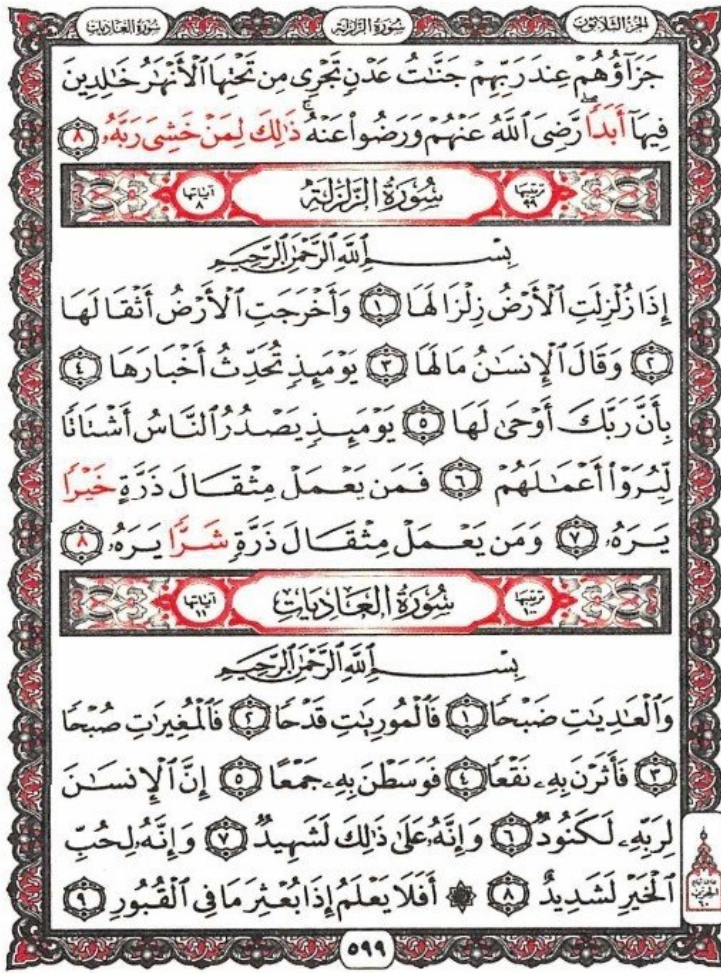 الجزء الثلاثون
سورة الزلزلة
سورة العاديات
جَزَآؤُهُمْ عِندَ رَبِّهِمْ جَنَّٰتُ عَدْنٍ تَجْرِى مِن تَحْتِهَا ٱلْأَنْهَٰرُ خَٰلِدِينَ
فِيهَآ أَبَدًۭا ۖ رَّضِىَ ٱللَّهُ عَنْهُمْ وَرَضُوا۟ عَنْهُ ۚ ذَٰلِكَ لِمَنْ خَشِىَ رَبَّهُۥ ٨
ترتيبها ٩٩
سُورَةُ الزَّلْزَلَةِ
آياتها ٨
بِسْمِ ٱللَّهِ ٱلرَّحْمَٰنِ ٱلرَّحِيمِ
إِذَا زُلْزِلَتِ ٱلْأَرْضُ زِلْزَالَهَا ١ وَأَخْرَجَتِ ٱلْأَرْضُ أَثْقَالَهَا
٢ وَقَالَ ٱلْإِنسَٰنُ مَا لَهَا ٣ يَوْمَئِذٍۢ تُحَدِّثُ أَخْبَارَهَا ٤
بِأَنَّ رَبَّكَ أَوْحَىٰ لَهَا ٥ يَوْمَئِذٍۢ يَصْدُرُ ٱلنَّاسُ أَشْتَاتًۭا
لِّيُرَوْا۟ أَعْمَٰلَهُمْ ٦ فَمَن يَعْمَلْ مِثْقَالَ ذَرَّةٍ خَيْرًۭا
يَرَهُۥ ٧ وَمَن يَعْمَلْ مِثْقَالَ ذَرَّةٍۢ شَرًّۭا يَرَهُۥ ٨
ترتيبها ١٠٠
سُورَةُ العَادِيَاتِ
آياتها ١١
بِسْمِ ٱللَّهِ ٱلرَّحْمَٰنِ ٱلرَّحِيمِ
وَٱلْعَٰدِيَٰتِ ضَبْحًۭا ١ فَٱلْمُورِيَٰتِ قَدْحًۭا ٢ فَٱلْمُغِيرَٰتِ صُبْحًۭا
٣ فَأَثَرْنَ بِهِۦ نَقْعًۭا ٤ فَوَسَطْنَ بِهِۦ جَمْعًا ٥ إِنَّ ٱلْإِنسَٰنَ
لِرَبِّهِۦ لَكَنُودٌۭ ٦ وَإِنَّهُۥ عَلَىٰ ذَٰلِكَ لَشَهِيدٌۭ ٧ وَإِنَّهُۥ لِحُبِّ
ٱلْخَيْرِ لَشَدِيدٌ ٨ ۞ أَفَلَا يَعْلَمُ إِذَا بُعْثِرَ مَا فِى ٱلْقُبُورِ ٩
الحزب
٦٠
٥٩٩